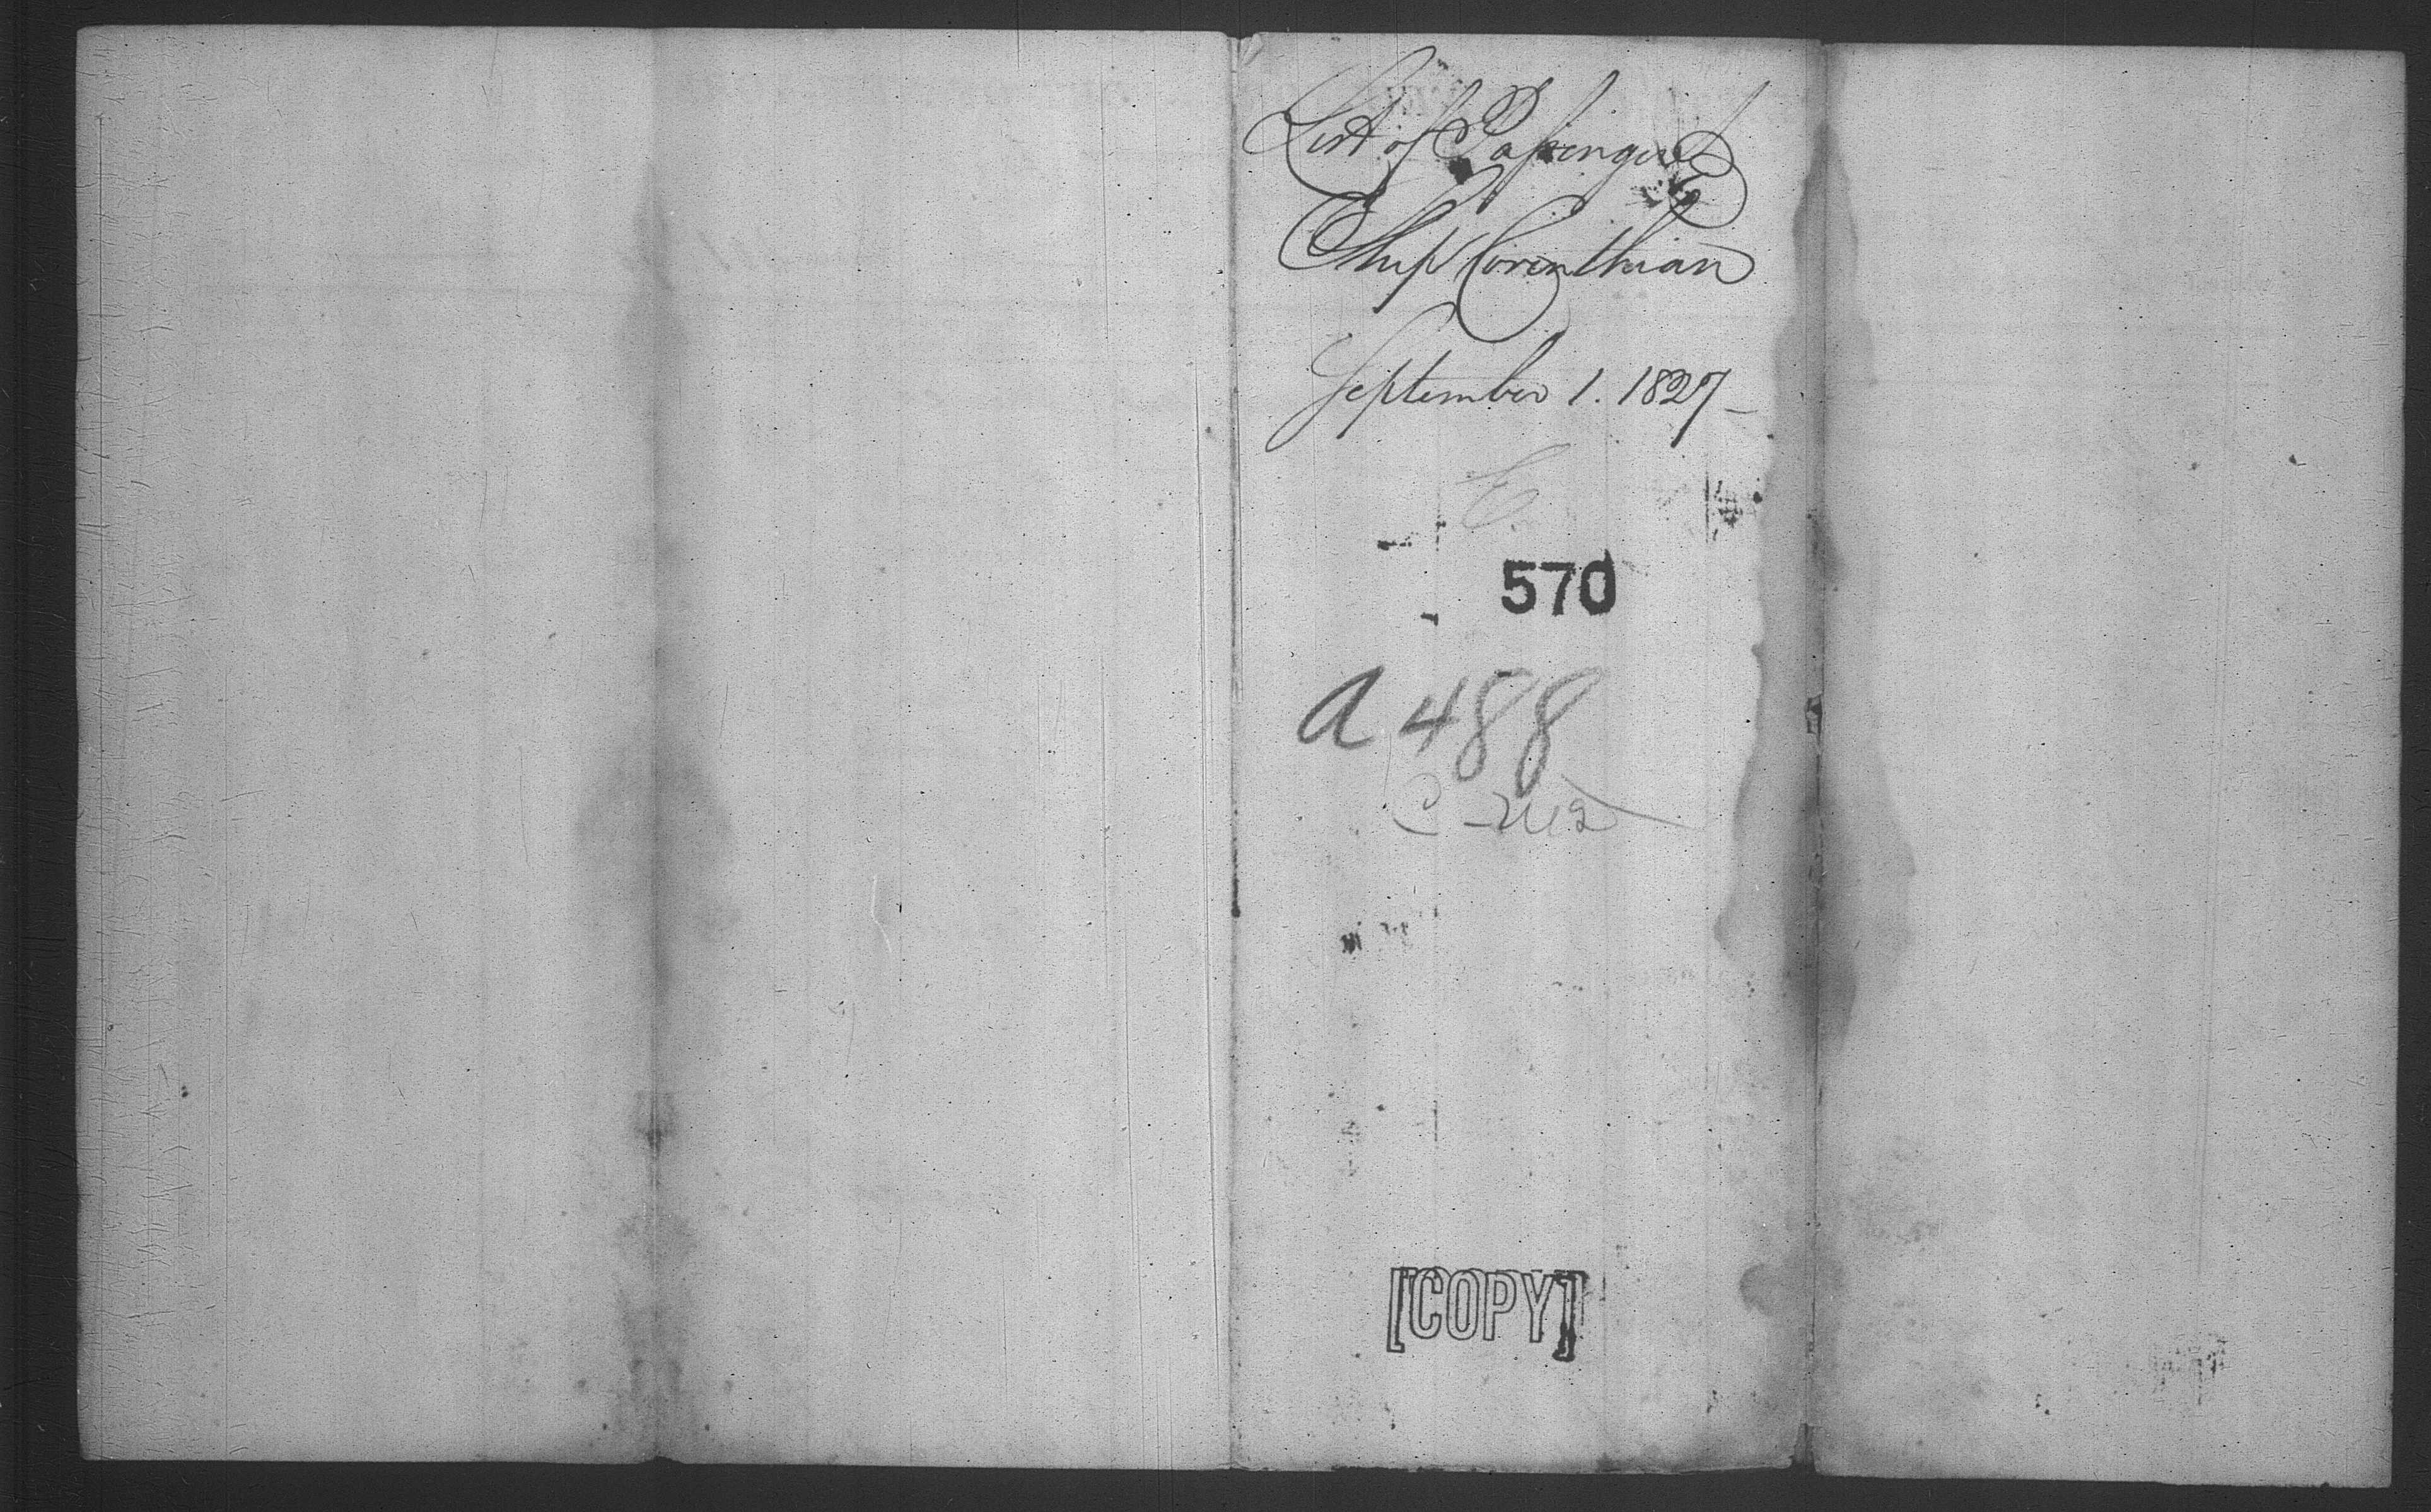 List of Passengers
Ship Corinthian
September 1. 1827
E
570
A 488
[COPY]